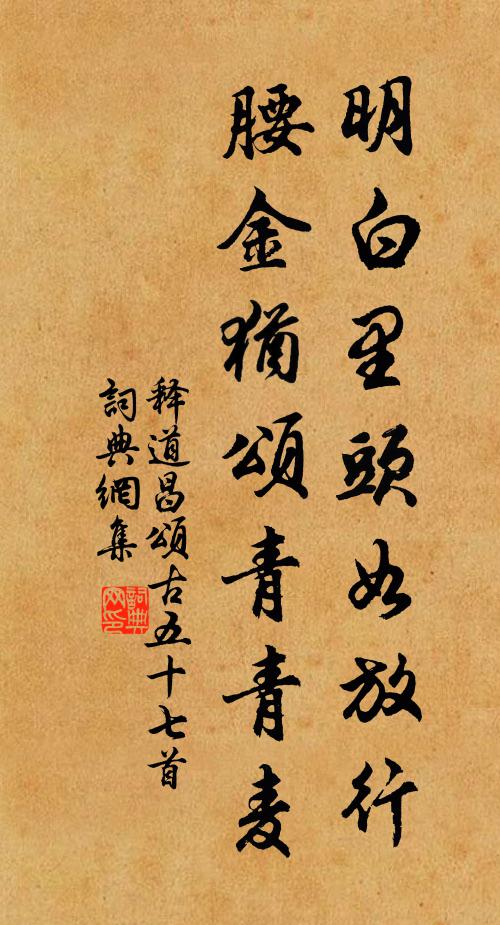 明白里頭如放行
腰金猶頌青青麦
释道昌頌古五十七首
詞典網集
詞典网印